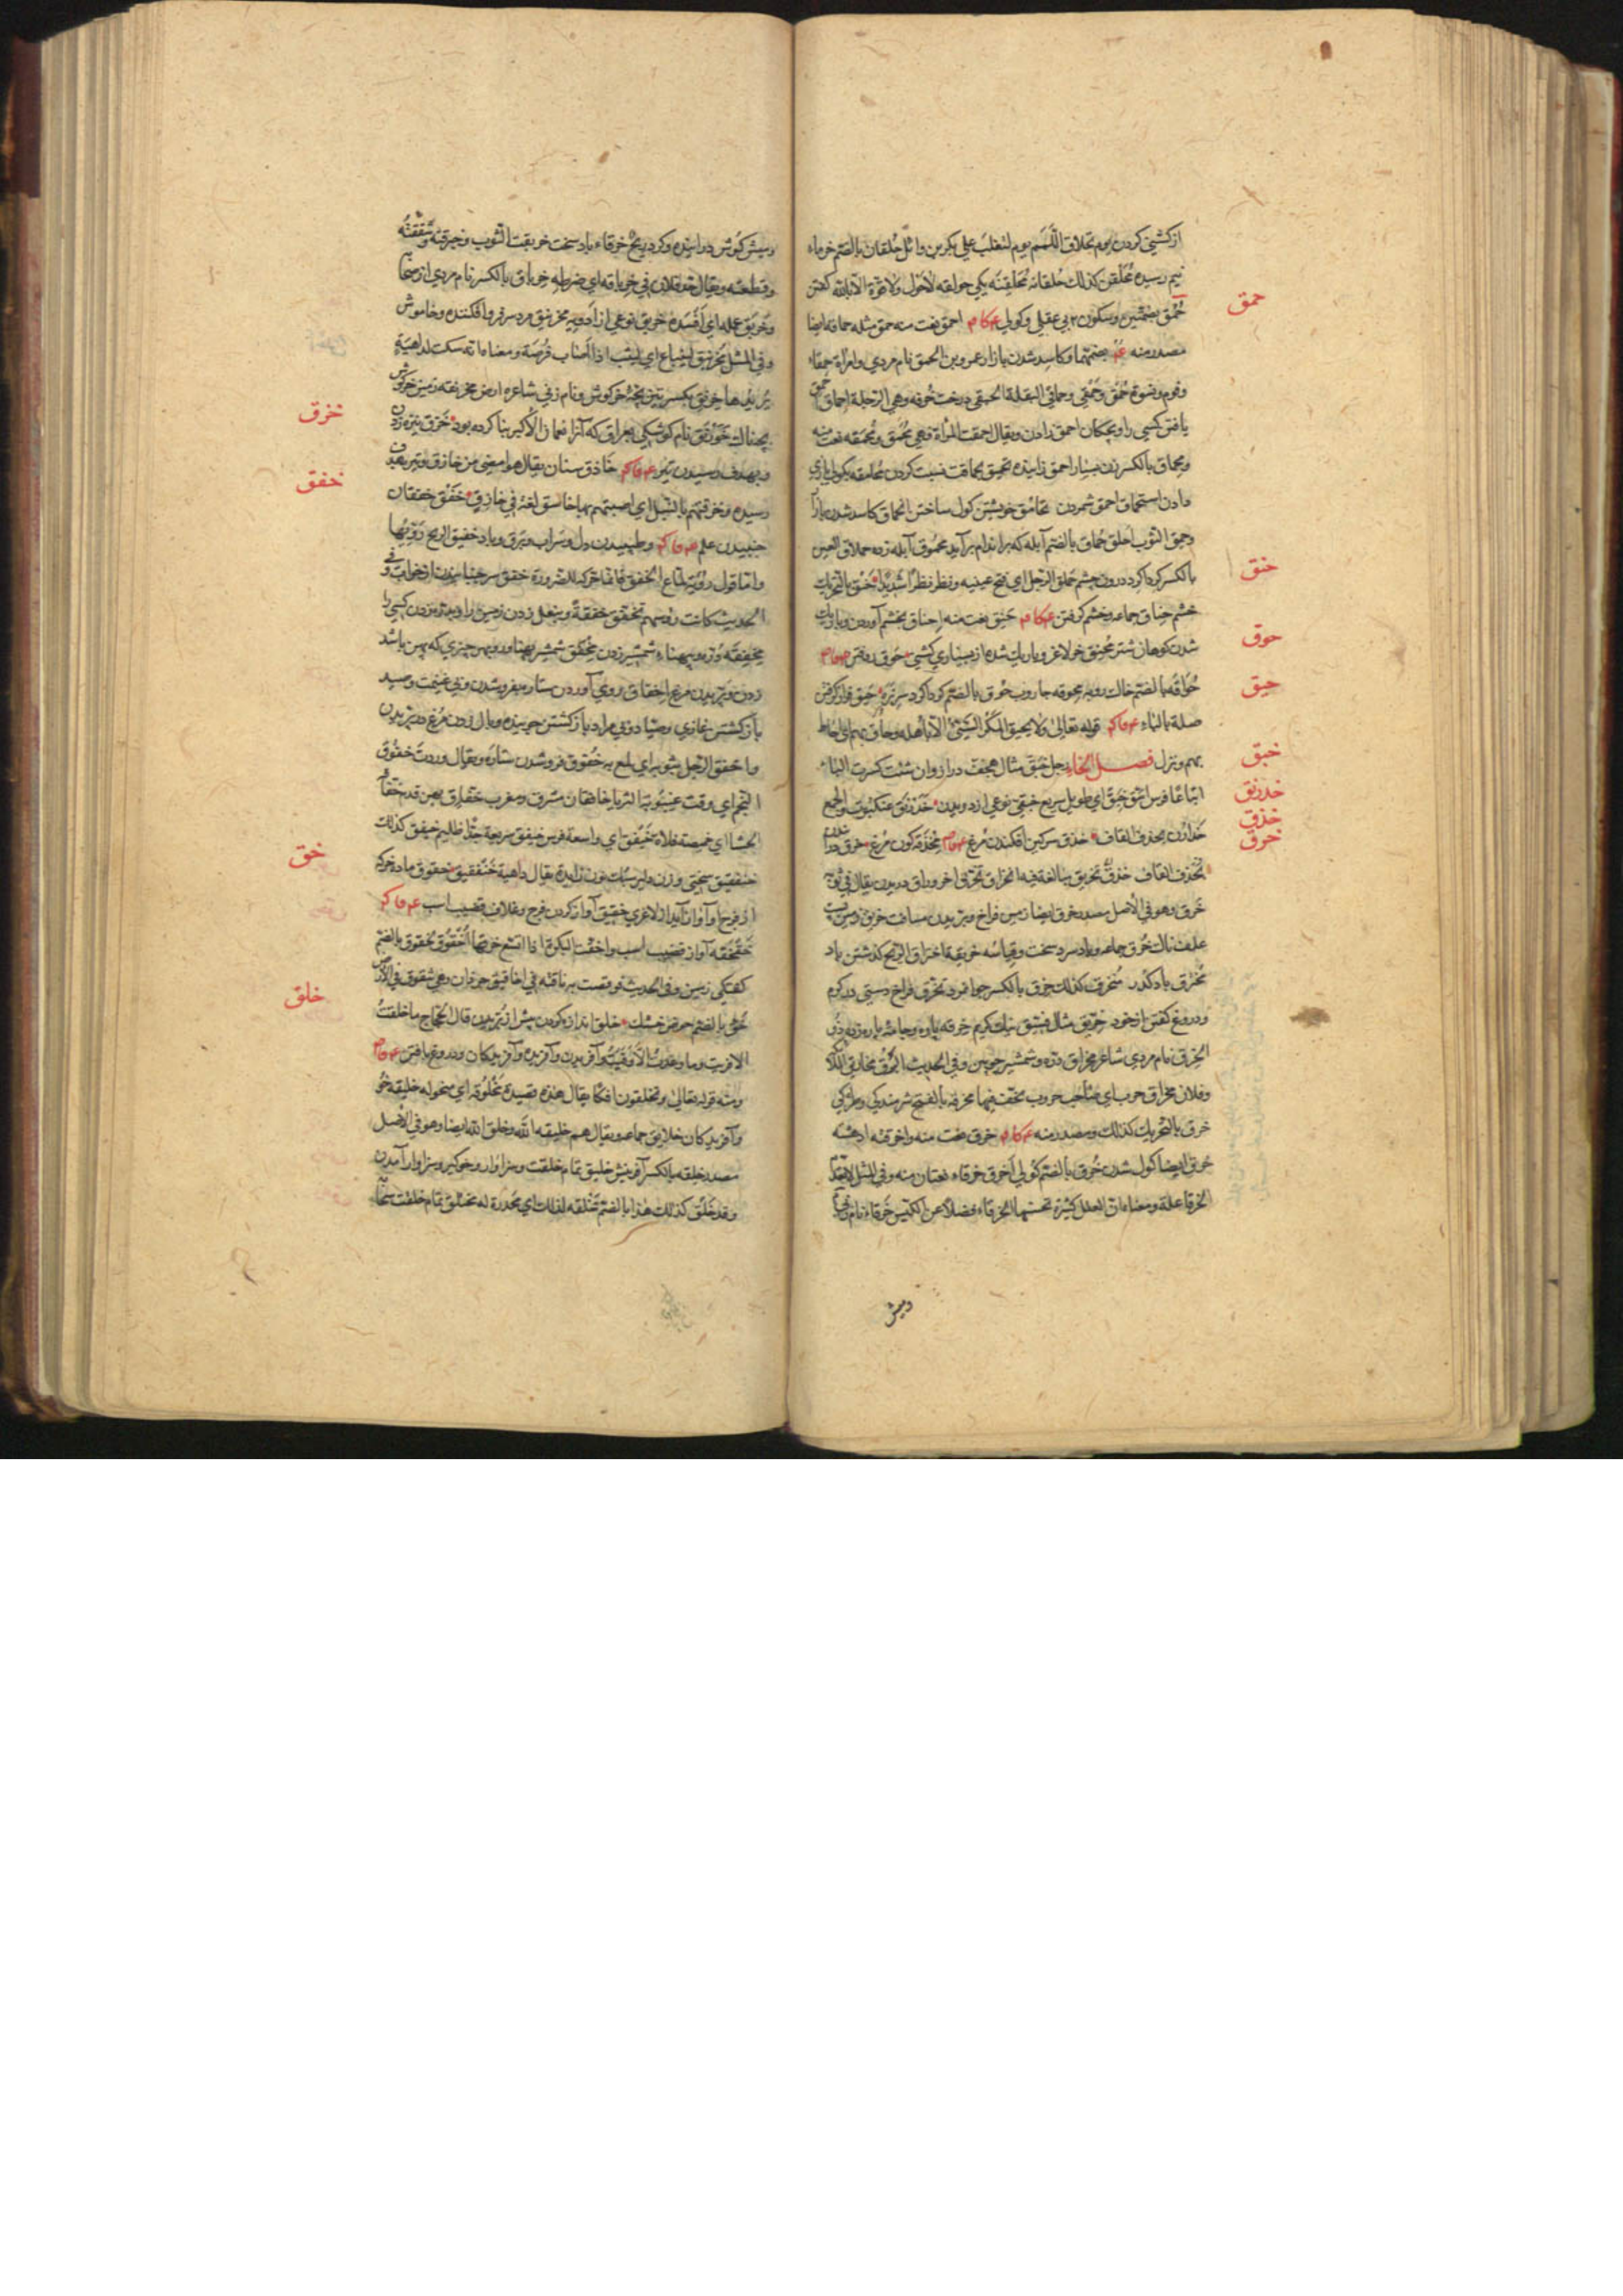 ازكشني كردن يوم تحلاق اللمم يوم لتغلب علي بكر بن وائل حلقان بالضم خرماء
نيم رسيده محلقن كذلك حلقانه محلقنه يكي حولقه لاحول ولا قوة الا بالله كفتن
حمق
حمق بضمتين وسكون م بي عقلي وكولي احمق نعت منه حمق مثله حماقه ايضا
مصدر منه بضمتهما وكاسد شدن بازار عمرو بن الحمق نام مردي وامراة حمقاء
وقوم ونسوة حمق وحمقي وحماقي البقلة الحمقي درخت خرفه وهي الرجلة احماق
يافتن كسي را وبچكان احمق زادن ويقال احمقت المراة فهي محمق ومحمقه نعت منه
ومحماق بالكسر زن بسيار احمق زاينده تحميق بحماقت نسبت كردن
دادن استحماق احمق شمردن تحامق خويشتن كول ساختن انحماق كاسد شدن بازار
وحمق الثوب اخلق حماق بالضم آبله كه بر اندام برآيد محموق آبله زده حملاق العين
بالكسر كرداكرد درون چشم حملق الرجل اي فتح عينيه ونظر نظرا شديدا حنق بالتحريك
حنق
خشم حناق جماعه وخشم كرفتن حنق نعت منه احناق بخشم آوردن وباريك
شدن كوهان شتر محنق خر لاغر وباريك شده از بسياري كشني حوق روفتن
حوق
حواقه بالضم خاك روبه محوقه جاروب حوق بالضم كرداكرد سر نره حيق فرو كرفتن
حيق
صلة بالباء قوله تعالي ولا يحيق المكر السيئ الا باهله وحاق بهم اي احاط
بهم ونزل فصل الخاء رجل خبق مثال هجف دراز وان شئت كسرت الباء
خبق
اتباعا فرس اشق خبق اي طويل سريع خبقي نوعي از دويدن خدرنق عنكبوت والجمع
خدرنق
خدارن بحذف القاف خذق سركين افكندن مرغ مخذقه كون مرغ خرق
خذق
خرق
بحذف القاف خرق تخريق مبالغة فيه انخراق تخرق اخروراق دريدن يقال في ثوبه
خرق وهو في الاصل مصدر خرق ايضا زمين فراخ وبريدن مسافت خريق زمين پست
علف ناك خرق جماعه وباد سرد سخت وقياسه خريقة اختراق الريح كذشتن باد
مخترق بادكذر منخرق كذلك خرق بالكسر جوانمرد تخرق فراخ دستي در كرم
ودروغ كفتن از خود خريق مثال فسيق نيك كريم خرقه پاره وجامه پاره زده ذو
الخرق نام مردي شاعر مخراق دره وشمشير چوبين وفي الحديث البرق مخاريق الملائكة
وفلان مخراق حرب اي صاحب حروب يخف فيها مخرقه بالفتح شرمندكي
خرق بالتحريك كذلك ومصدر منه خرق نعت منه واخرقته ادهشته
خرق ايضا كول شدن خرق بالضم كولي اخرق خرقاء نعتان منه وفي المثل لا تعدم
الخرقاء علة ومعناه ان العلل كثيرة تحسنها الخرقاء فضلا عن الكيس خرقاء نام زني
وميش
وميش كوش درانيده وكرد ريح خرقاء باد سخت خربقت الثوب وخبرقته وشققته
وقطعته ويقال جد فلان في خرباقه اي ضرطه خرباق بالكسر نام مردي از صحابه
وخربق عمله اي افسده خربق نوعي از ادويه مخرنبق مرد سر فرو افكنده وخاموش
وفي المثل مخرنبق لينباع اي ليثب اذا اصاب فرصة ومعناه انه سكت لداهية
يريدها خرنق بكسرتين بچه خركوش ونام زني شاعره ارض مخرنقه زمين خركوش
بچه ناك خورنق نام كوشكي بعراق كه آنرا نعمان الاكبر بنا كرده بود خزق نيزه زدن
خزق
وبهدف رسيدن تير خازق سنان يقال هو امضي من خازق وتير بهدف
رسيده وخزقتهم بالنبل اي اصبتهم بها خاسق لغة في خازق خفق خفقان
خفق
جنبيدن علم وطپيدن دل وسراب وبرق وباد خفيق الريح دويها
واما قول رؤبة لماع الخفق فانما حركه للضرورة خفق سر جنبانيدن از خواب وفي
الحديث كانت رؤسهم تخفق خفقة وبنعل زدن زمين را وبدره زدن كسي را
مخفقه دره وبپهناء شمشير زدن مخفق شمشير پهناور وبهر چيزي كه پهن باشد
زدن وپريدن مرغ اخفاق روي آوردن ستاره بفرو شدن وبي غنيمت وصيد
بازكشتن غازي وصياد وبي مراد بازكشتن جوينده وبال زدن مرغ در پريدن
واخفق الرجل بثوبه اي لمع به خفوق فرو شدن ستاره ويقال وردت خفوق
النجم اي وقت غيبوبة الثريا خافقان مشرق ومغرب خفاق پهن قدم خفاقة
الحشا اي خميصة فلاة خيفق اي واسعة فرس خيفق سريعة جدا ظليم خيفق كذلك
خنفقيق سختي وزن دلير سبك نون زايدة يقال داهية خنفقيق خقوق ماده خر كه
خق
از فرج او آواز آيد از لاغري خقيق آواز كردن فرج وغلاف قضيب اسب
خقخقه آواز قضيب اسب واخقت البكرة اذا اتسع خرقها اخقوق لخقوق بالضم
كفتكي زمين وفي الحديث فوقصت به ناقته في اخاقيق جرذان وهي شقوق في الارض
خق بالضم حوض خشك خلق اندازه كردن پيش از بريدن قال الحجاج ما خلقت
خلق
الا فريت وما وعدت الا وفيت وآفريدن وآفريده وآفريدكان ودروغ بافتن
ومنه قوله تعالي وتخلقون افكا يقال هذه قصيدة مخلوقة اي منحوله خليقه خو
وآفريدكان خلايق جماعه ويقال هم خليقة الله وخلق الله ايضا وهو في الاصل
مصدر خلقه بالكسر آفرينش خليق تمام خلقت وسزاوار وخوكير وسزاوار آمدن
وقد خلق كذلك هذا بالضم مخلقة لذلك اي مجدرة له مختلق تمام خلقت